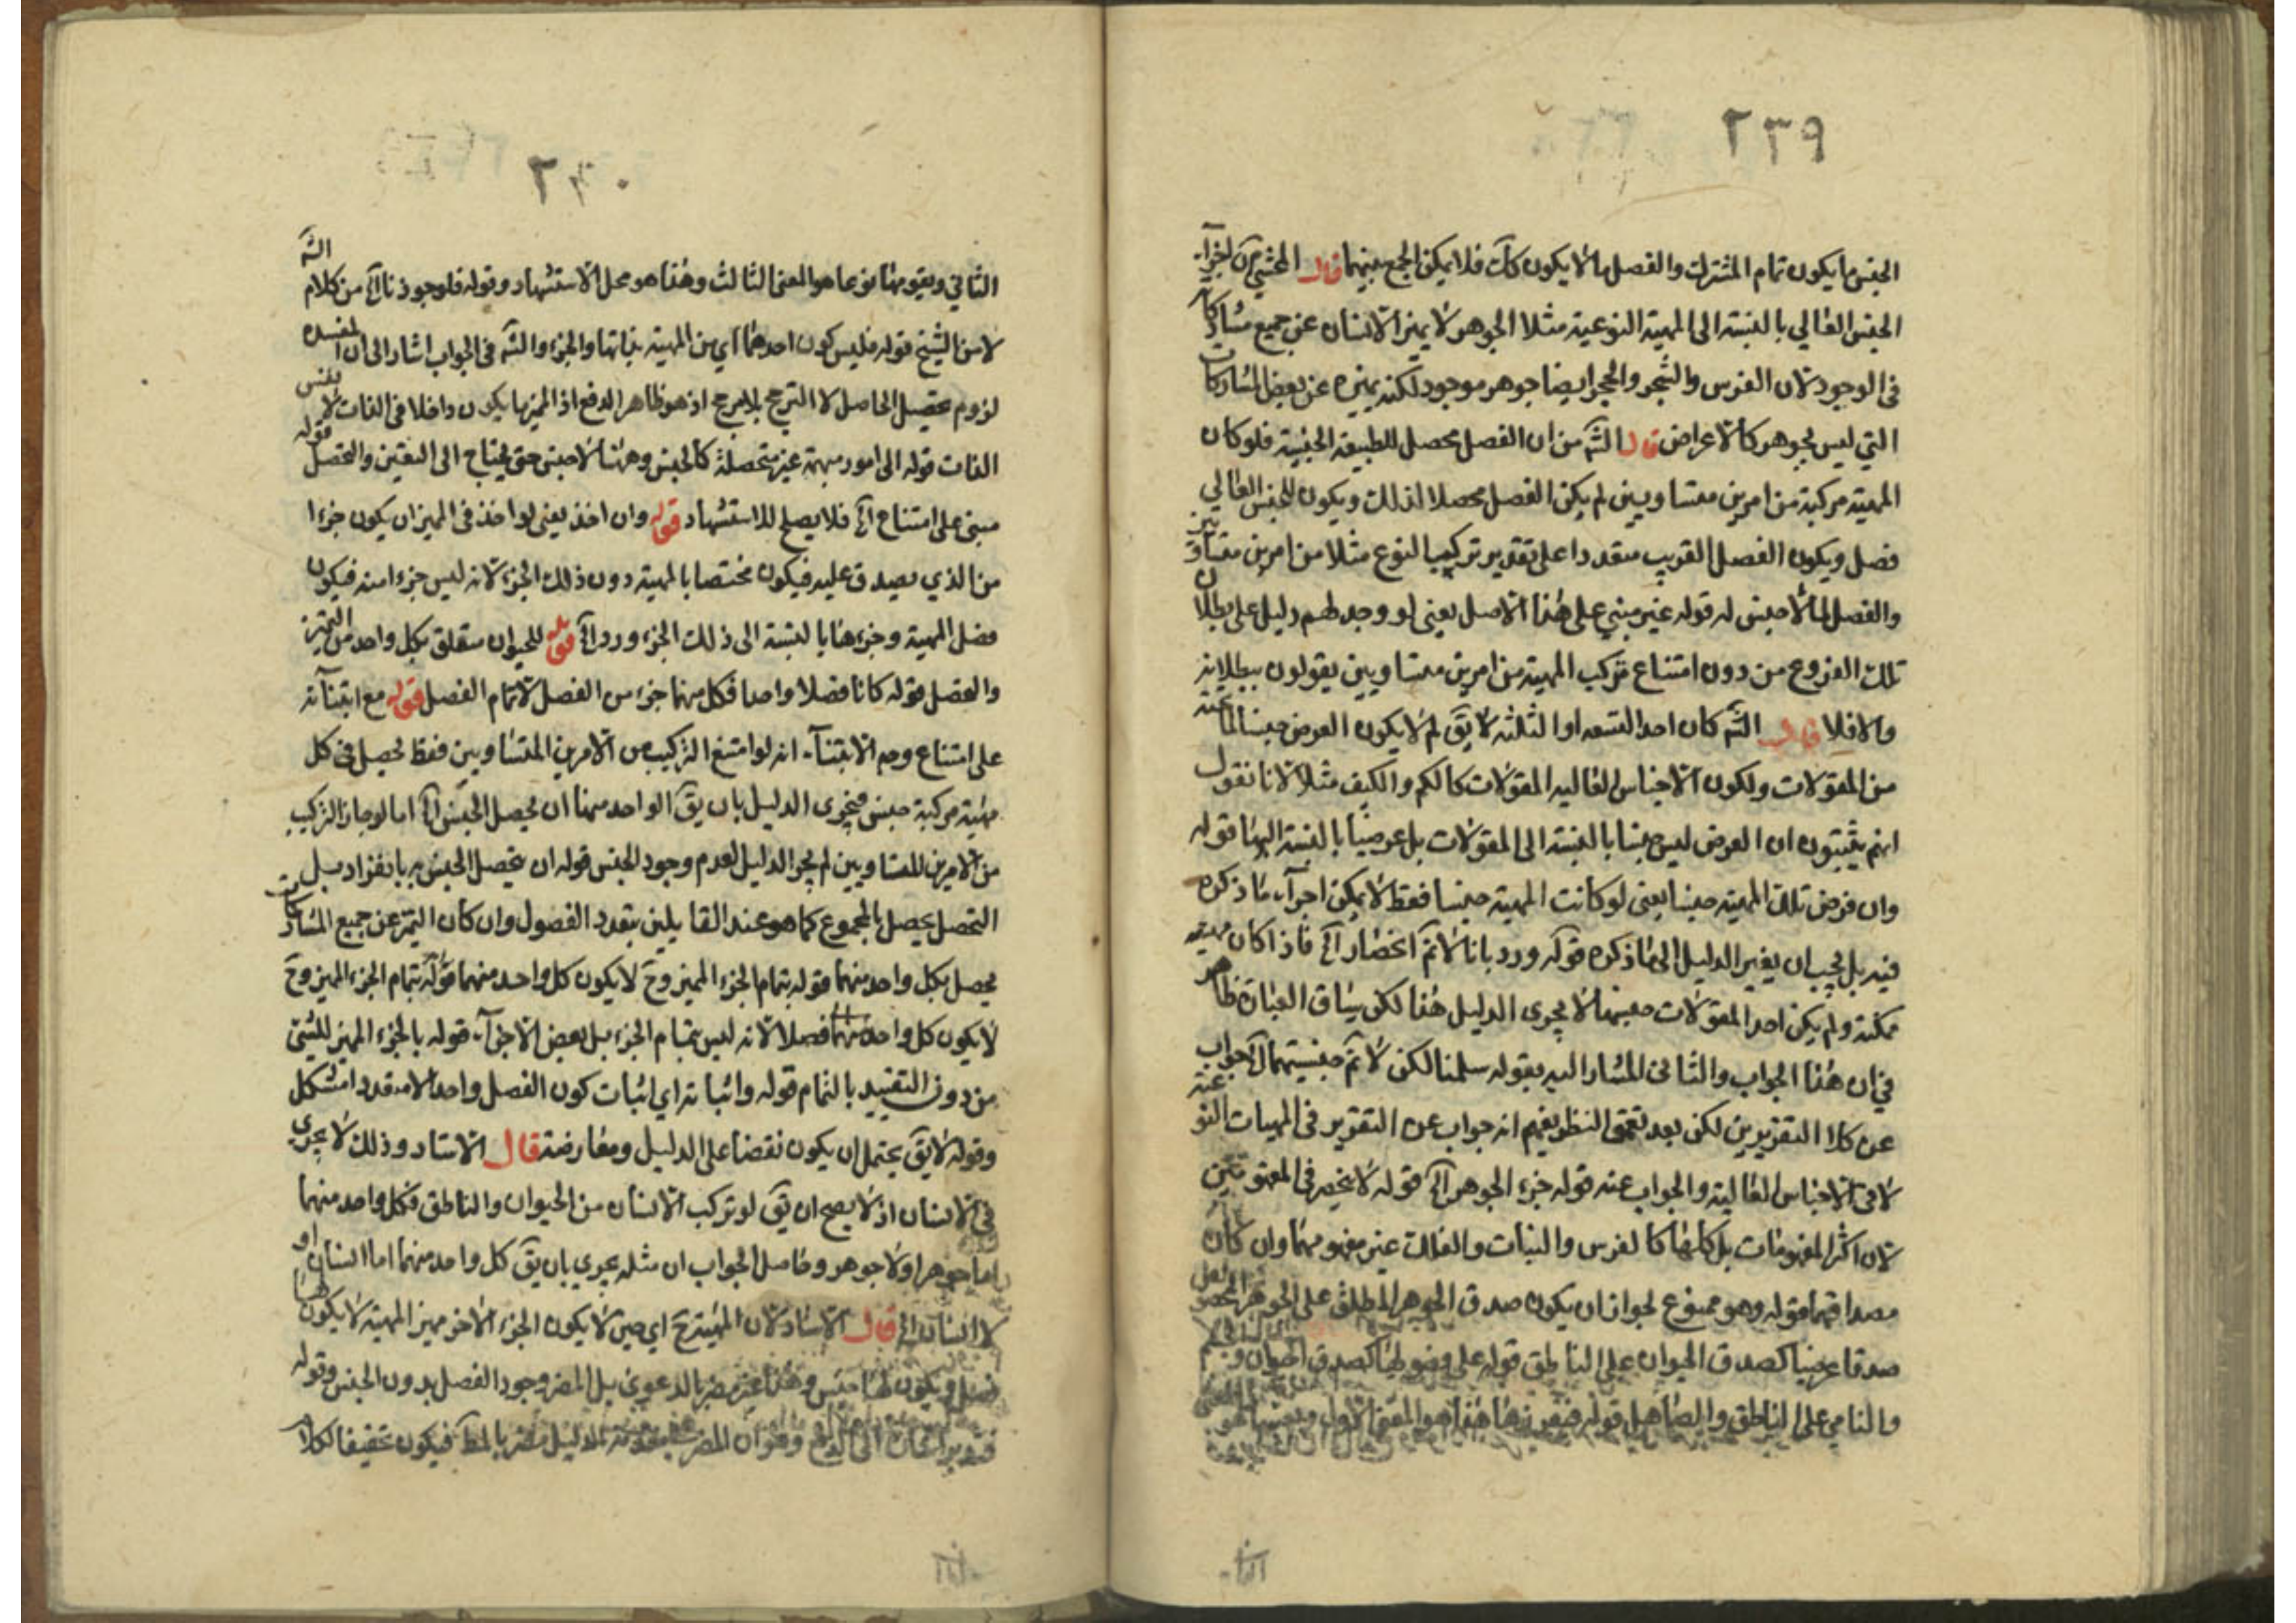 ٢٣٩
الجنس ما يكون تمام المشترك والفصل ما لا يكون كك فلا يمكن الجمع بينهما قال المحشي من اجزآء
الجنس العالي بالنسبة الى المهية النوعية مثلا الجوهر لا يميز الانسان عن جميع مشاركاته
في الوجود لان الفرس والشجر والحجر ايضا جوهر موجود لكنه يميزه عن بعض المشاركات
التي ليس بجوهر كالاعراض قال الشم من ان الفصل محصل للطبيعة الجنسية فلو كان
المهية مركبة من امرين متساويين لم يكن الفصل محصلا لذلك ويكون للجنس العالي
فصل ويكون الفصل القريب متعددا على تقدير تركيب النوع مثلا من امرين متساويين
والفصل لما لا جنس له قوله غير مبني على هذا الاصل يعني لو وجد لهم دليل على بطلان
تلك الفروع من دون امتناع تركب المهية من امرين متساويين يقولون ببطلانه
والا فلا قال الشم كان احد التسعه او الثلثه لا يق لم لا يكون العرض جنسا لما تحته
من المقولات ولكون الاجناس العاليه المقولات كالكم والكيف مثلا لانا نقول
انهم يثبتون ان العرض ليس جنسا بالنسبة الى المقولات بل عرضيا بالنسبة اليها قوله
وان فرض تلك المهية جنسا يعني لو كانت المهية جنسا فقط لا يمكن اجرآء ما ذكره
فيه بل يجب ان يغير الدليل الى ما ذكره قوله ورد بانا لا نم انحصار اه فاذا كان مهية
ممكنة ولم يكن احد المقولات جنسها لا يجري الدليل هذا لكن سياق العبارة ظاهر
في ان هذا الجواب والثاني المشار اليه بقوله سلمنا لكن لا نم جنسيتها اه جواب
عن كلا التقريرين لكن بعد تعمق النظر يفهم انه جواب عن التقرير في المهيات النوعية
لا في الاجناس العالية والجواب عنه قوله جزء الجوهر اه قوله لا ينحصر في المفهومين
لان اكثر المفهومات بل كلها كالفرس والنبات والفلك غير مفهومهما وان كان
مصداقهما قوله وهو ممنوع لجواز ان يكون صدق الجوهر المطلق على الجوهر
صدقا عرضيا كصدق الحيوان على الناطق قوله على كصدق الحيوان
والنامي على الناطق والصاهل قوله هذا هو المعنى الاول
٢٤٠
الثاني ويقومها نوعا هو المعنى الثالث وهذا هو محل الاستشهاد وقوله فلوجوذنا اه من كلام الشم
لا من الشيخ قوله فليس كون احدهما اي من المهية بذاتها والجزء والشم في الجواب اشار الى ان المفسدة
لزوم تحصيل الحاصل لا الترجيح بلا مرجح اذ هو ظاهر الدفع اذ المميز يكون داخلا في الذات لا نفس
الذات قوله الى امور مبهمة غير متحصلة كالجنس وههنا لا جنس حتى يحتاج الى التعين والتحصل قوله
مبني على امتناع اه فلا يصلح للاستشهاد قوله وان اخذ يعني لو اخذ في المميز ان يكون جزءا
من الذي يصدق عليه فيكون مختصا بالمهية دون ذلك الجزء لانه ليس جزءا منه فيكون
فصل المهية وجزءها بالنسبة الى ذلك الجزء ورد اه قوله للحيوان متعلق بكل واحد من التميز
والفصل قوله كانا فصلا واحدا فكل منهما جزء من الفصل لا تمام الفصل قوله مع ابتنآئه
على امتناع وجه الابتنآء انه لو امتنع التركيب من الامرين المتساويين فقط يحصل في كل
مهية مركبة جنس فيجري الدليل بان يق الواحد منها ان يحصل الجنس اه اما لو جاز التركيب
من الامرين المتساويين لم يجر الدليل لعدم وجود الجنس قوله ان يحصل الجنس به بانفراد بل
التحصل يحصل بالمجموع كما هو عند القايلين بتعدد الفصول وان كان التميز عن جميع المشاركات
يحصل بكل واحد منهما قوله بتمام الجزء المميز وح لا يكون كل واحد منهما قوله بتمام الجزء المميز وح
لا يكون كل واحد منهما فصلا لانه ليس بتمام الجزء بل بعض الاجزآء قوله بالجزء المميز للشيئ
من دون التقييد بالتمام قوله واثباته اي اثبات كون الفصل واحدا لا متعددا مشكل
وقوله لا يق يحتمل ان يكون نقضا على الدليل ومعارضة قال الاستاد وذلك لا يجري
في الانسان اذ لا يصح ان يق لو تركب الانسان من الحيوان والناطق فكل واحد منهما
اما جوهر او لا جوهر وحاصل الجواب ان مثله يجري بان يق كل واحد منهما اما انسان او
لا انسان اه قال الاستاد لان المهية ح اي حين لا يكون الجزء الاخر مميز المهية لا يكون لها
فصل ويكون لها جنس وهذا غير مضر بالدعوى بل المضر وجود الفصل بدون الجنس وقوله
وهو ان المضر الدليل مضر بالمط فيكون تحقيقا لكلام